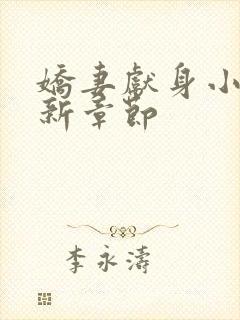 嬌妻獻身小
新章節
李永濤